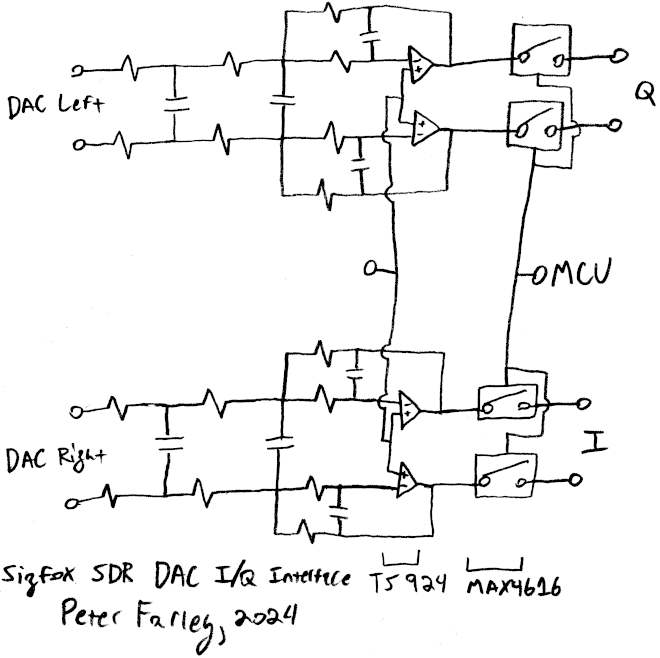 DAC Left
Q
MCU
DAC Right
I
Sigfox SDR DAC I/Q Interface TS924 MAX4616
Peter Farley, 2024